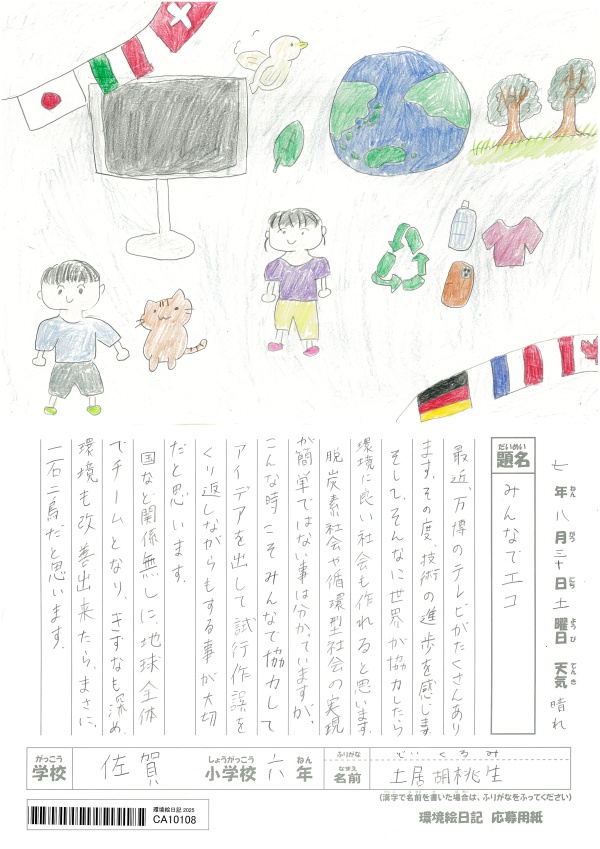 七年八月三十日土曜日 天気 晴れ
ねん がつ にち ようび てんき
だいめい
題名
みんなでエコ
最近、万博のテレビがたくさんあり
ます。その度、技術の進歩を感じます。
そして、そんなに世界が協力したら
環境に良い社会も作れると思います。
脱炭素社会や循環型社会の実現
が簡単ではない事は分かっていますが、
こんな時こそみんなで協力して
アイデアを出して試行作誤を
くり返しながらもする事が大切
だと思います。
国など関係無しに、地球全体
でチームとなり、きずなも深め、
環境も改善出来たら、まさに、
一石二鳥だと思います。
がっこう
学校 佐賀
しょうがっこう ねん
小学校 六年
ふりがな どい くるみ
なまえ
名前 土居胡桃生
(漢字で名前を書いた場合は、ふりがなをふってください)
環境絵日記 2025
CA10108
環境絵日記 応募用紙